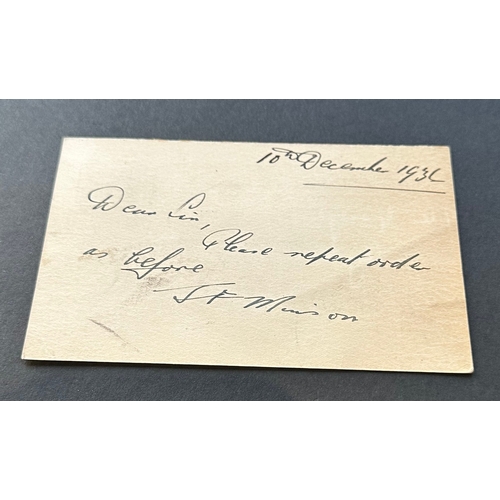 10th December 193
Dear Sir, Please repeat order
as before
Minson